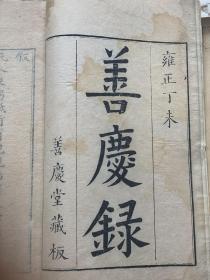 雍正丁未
善慶録
善慶堂藏板